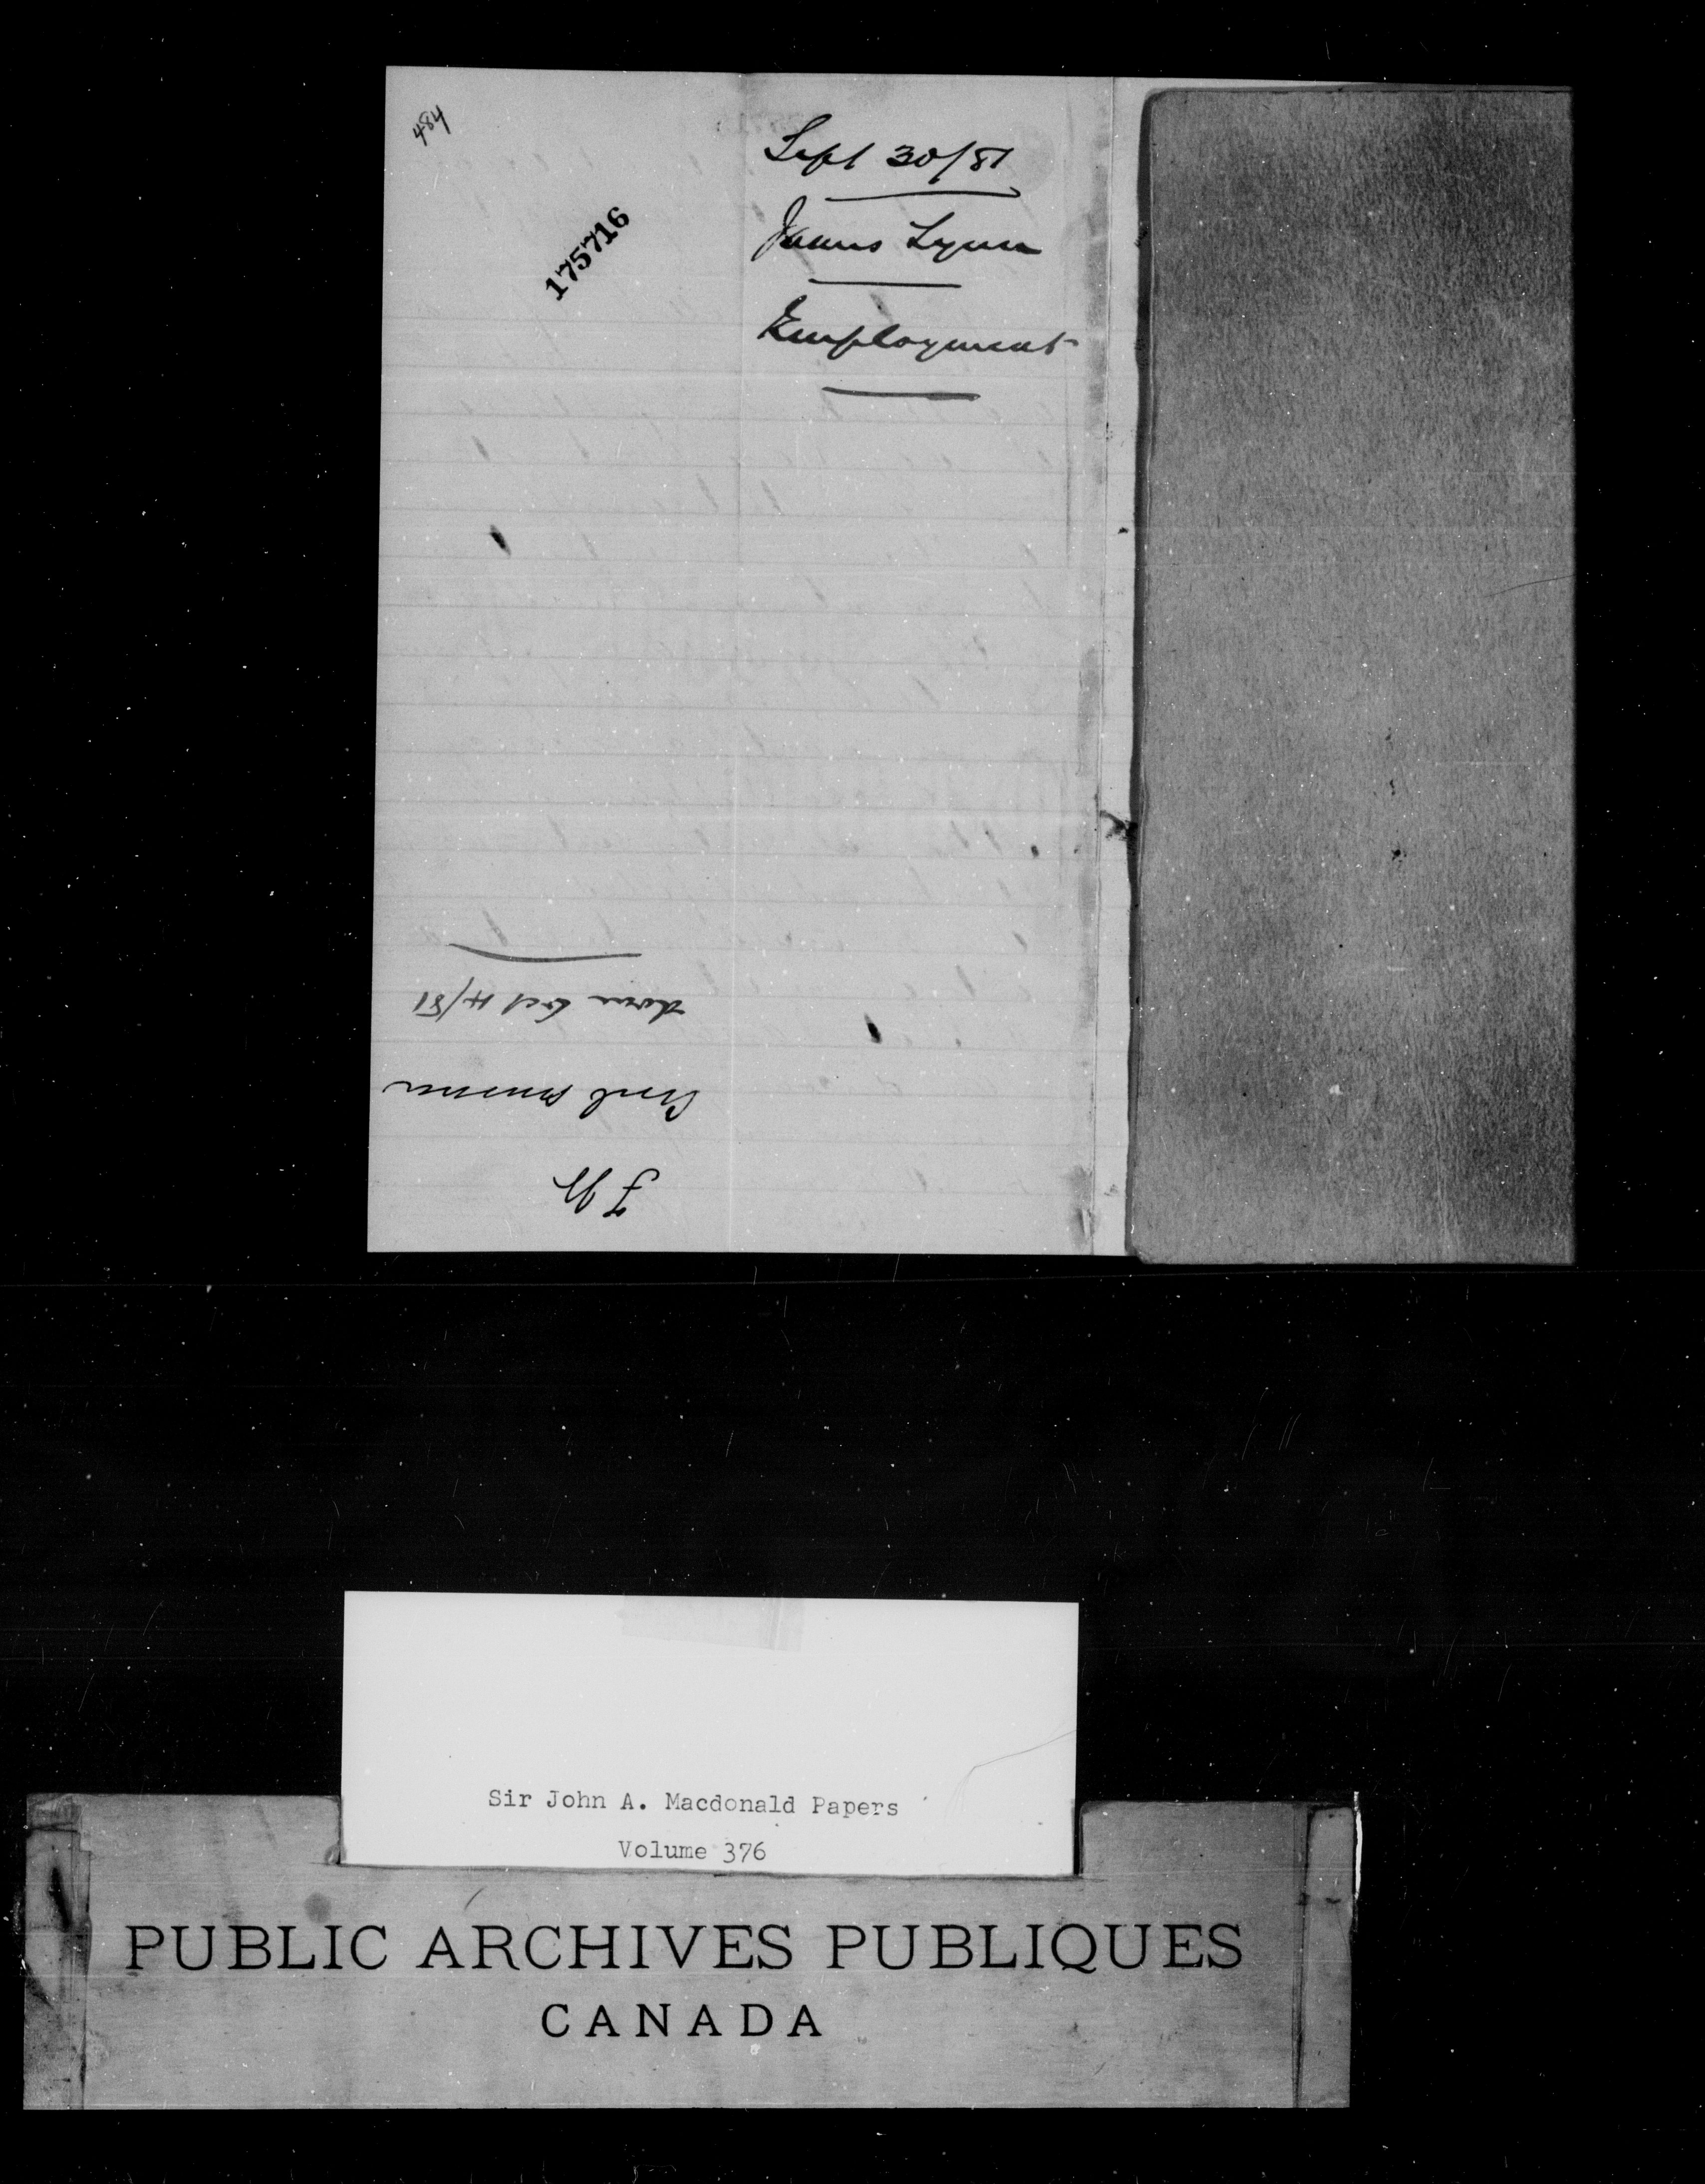 484
175716
Sept 30/81
James Lynn
Employment
F W
Civil answer
done Oct 4/81
Sir John A. Macdonald Papers
Volume 376
PUBLIC ARCHIVES PUBLIQUES
CANADA